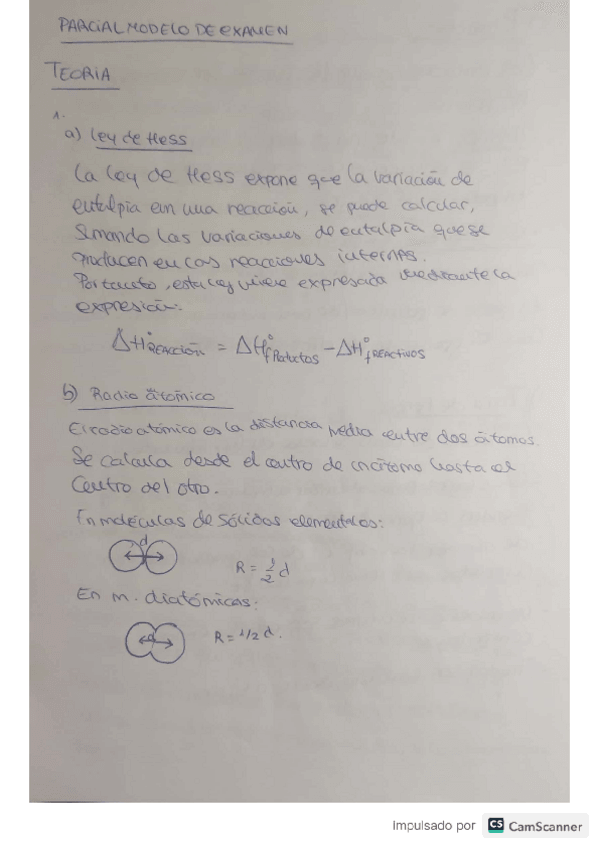 PARCIAL MODELO DE EXAMEN
TEORIA
1.
a) Ley de Hess
La ley de Hess expone que la variación de
entalpia em una reacción, se puede calcular,
sumando las variaciones de entalpia que se
producen en las reacciones internas.
Por tanto, esta ley viene expresada mediante la
expresión:
ΔH°REACCIÓN = ΔH°f Productos - ΔH°f REACTIVOS
b) Radio atómico
El radio atómico es la distancia media entre dos átomos.
Se calcula desde el centro de un átomo hasta el
centro del otro.
En moléculas de sólidos elementales:
d
R = 1/2 d
En m. diatómicas:
d
R = 1/2 d.
Impulsado por CS CamScanner